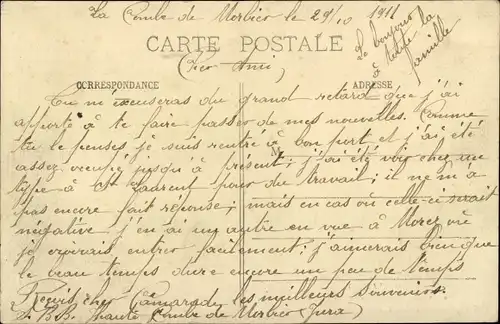 La Combe de Morbier le 29/10 1911
Le bonjour
à toute la
famille
CARTE POSTALE
Cher Ami,
CORRESPONDANCE
ADRESSE
Tu m'excuseras du grand retard que j'ai
apporté à te faire passer de mes nouvelles. Comme
tu le penses je suis rentré à bon port et j'ai été
M
assez occupé jusqu'à présent; j'ai été voir chez un
type à St Laurent pour du travail; il ne m'a
pas encore fait réponse; mais en cas où celle-ci serait
négative j'en ai un autre en vue à Morez où
je croirais entrer facilement; j'aimerais bien que
le beau temps dure encore un peu de temps
Reçois cher Camarade les meilleurs souvenirs.
haute Combe de Morbier (Jura)